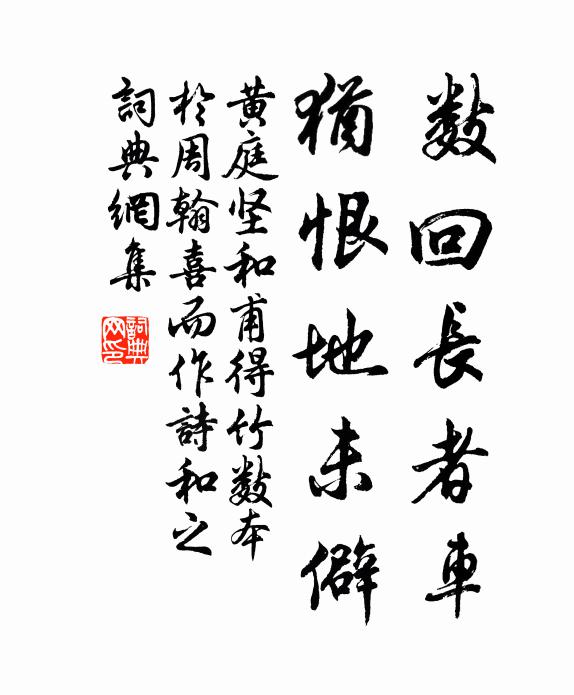 数回長者車
猶恨地未僻
黄庭坚和甫得竹数本
於周翰喜而作詩和之
詞典網集
詞典网印